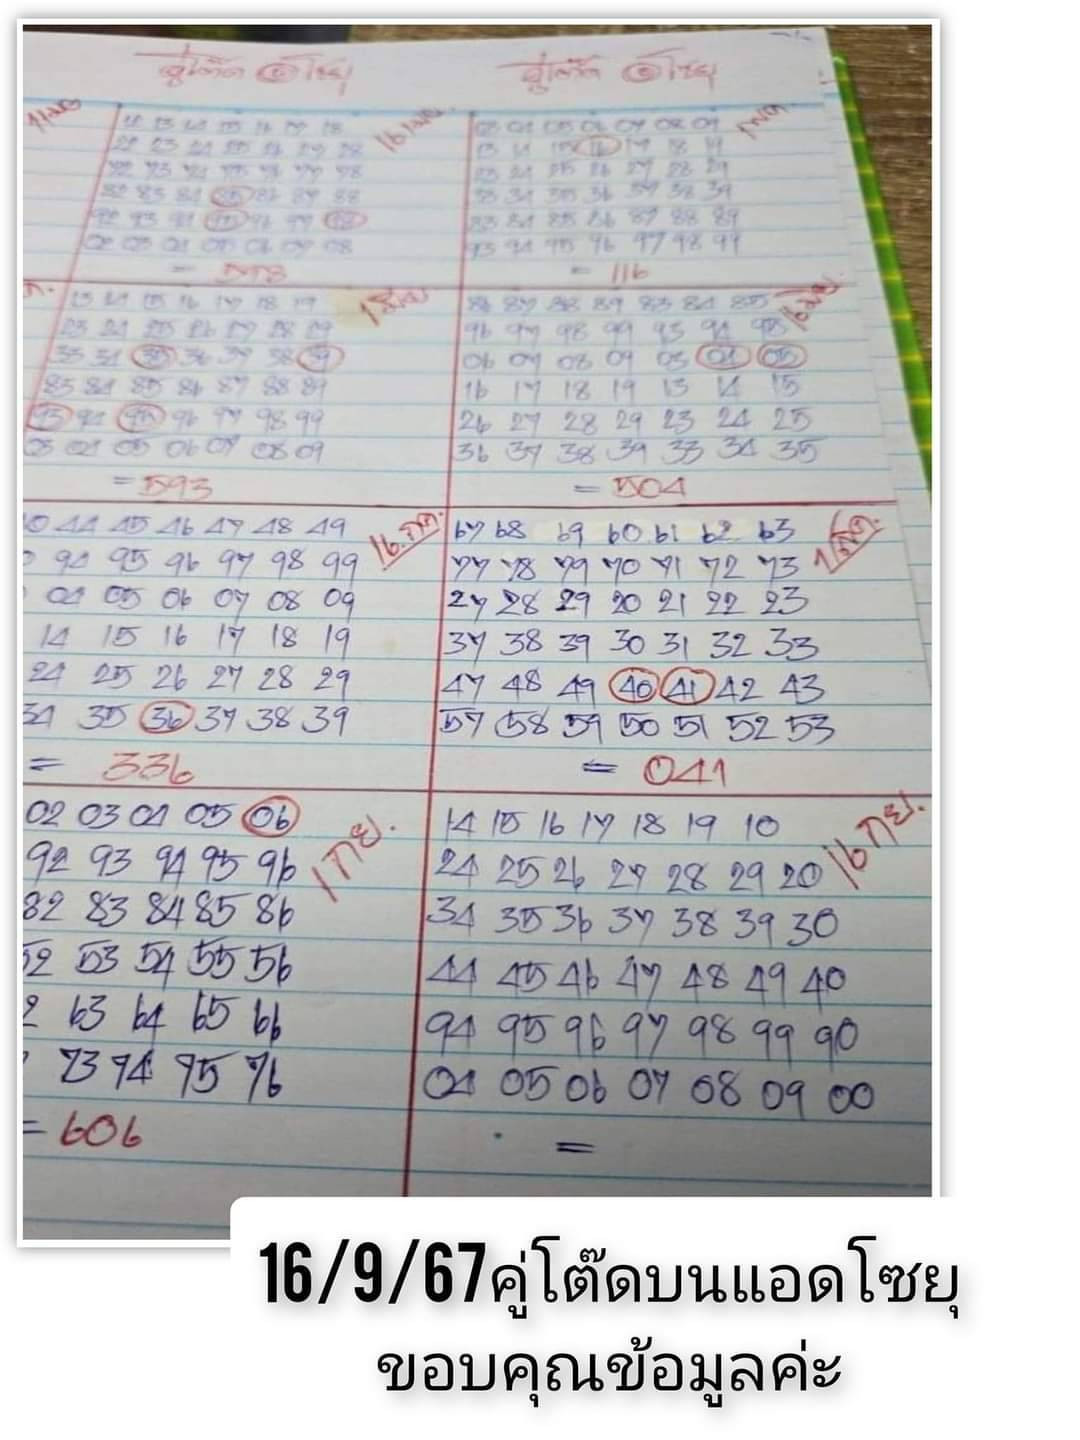 คู่โต๊ด @โซยุ
คู่โต๊ด @โซยุ
16 เมย.
03 04 05 06 07 08 09
13 14 15 16 17 18 19
22 23 24 25 26 27 28
23 24 25 26 27 28 29
82 83 84 85 86 87 88
33 34 35 36 37 38 39
92 93 94 95 96 97 98
83 84 85 86 87 88 89
02 03 04 05 06 07 08
93 94 95 96 97 98 99
= 116
13 14 15 16 17 18 19
86 87 88 89 83 84 85
23 24 25 26 27 28 29
96 97 98 99 93 94 95
33 34 35 36 37 38 39
06 07 08 09 03 04 05
83 84 85 86 87 88 89
16 17 18 19 13 14 15
93 94 95 96 97 98 99
26 27 28 29 23 24 25
03 04 05 06 07 08 09
36 37 38 39 33 34 35
= 593
= 504
44 45 46 47 48 49
16.กค.
67 68 69 60 61 62 63
1 สค.
94 95 96 97 98 99
77 78 79 70 71 72 73
04 05 06 07 08 09
27 28 29 20 21 22 23
14 15 16 17 18 19
37 38 39 30 31 32 33
24 25 26 27 28 29
47 48 49 40 41 42 43
34 35 36 37 38 39
57 58 59 50 51 52 53
= 336
= 041
02 03 04 05 06
1 กย.
14 15 16 17 18 19 10
16 กย.
92 93 94 95 96
24 25 26 27 28 29 20
82 83 84 85 86
34 35 36 37 38 39 30
52 53 54 55 56
44 45 46 47 48 49 40
63 64 65 66
94 95 96 97 98 99 90
73 74 75 76
04 05 06 07 08 09 00
= 606
=
16/9/67คู่โต๊ดบนแอดโซยุ
ขอบคุณข้อมูลค่ะ